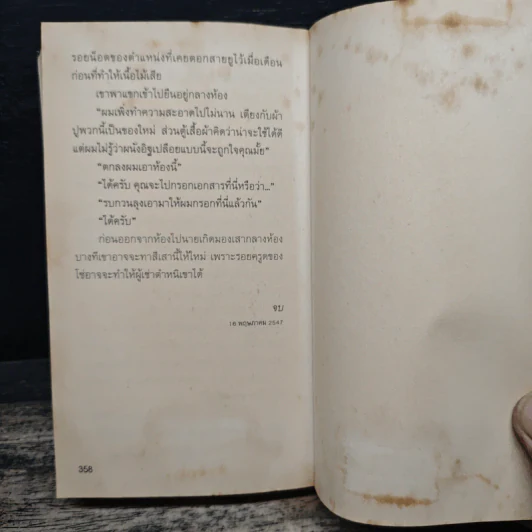 รอยน็อตของตำแหน่งที่เคยตอกสายยูไว้เมื่อเดือน
ก่อนที่ทำให้เนื้อไม้เสีย
เขาพาแขกเข้าไปยืนอยู่กลางห้อง
"ผมเพิ่งทำความสะอาดไปไม่นาน เตียงกับผ้า
ปูพวกนี้เป็นของใหม่ ส่วนตู้เสื้อผ้าคิดว่าน่าจะใช้ได้ดี
แต่ผมไม่รู้ว่าผนังอิฐเปลือยแบบนี้จะถูกใจคุณมั้ย"
"ตกลงผมเอาห้องนี้"
"ได้ครับ คุณจะไปกรอกเอกสารที่นี่หรือว่า..."
"รบกวนลุงเอามาให้ผมกรอกที่นี่แล้วกัน"
"ได้ครับ"
ก่อนออกจากห้องไปนายเกิดมองเสากลางห้อง
บางทีเขาอาจจะทาสีเสานี้ให้ใหม่ เพราะรอยครูดของ
โซ่อาจจะทำให้ผู้เช่าตำหนิเขาได้
จบ
16 พฤษภาคม 2547
358